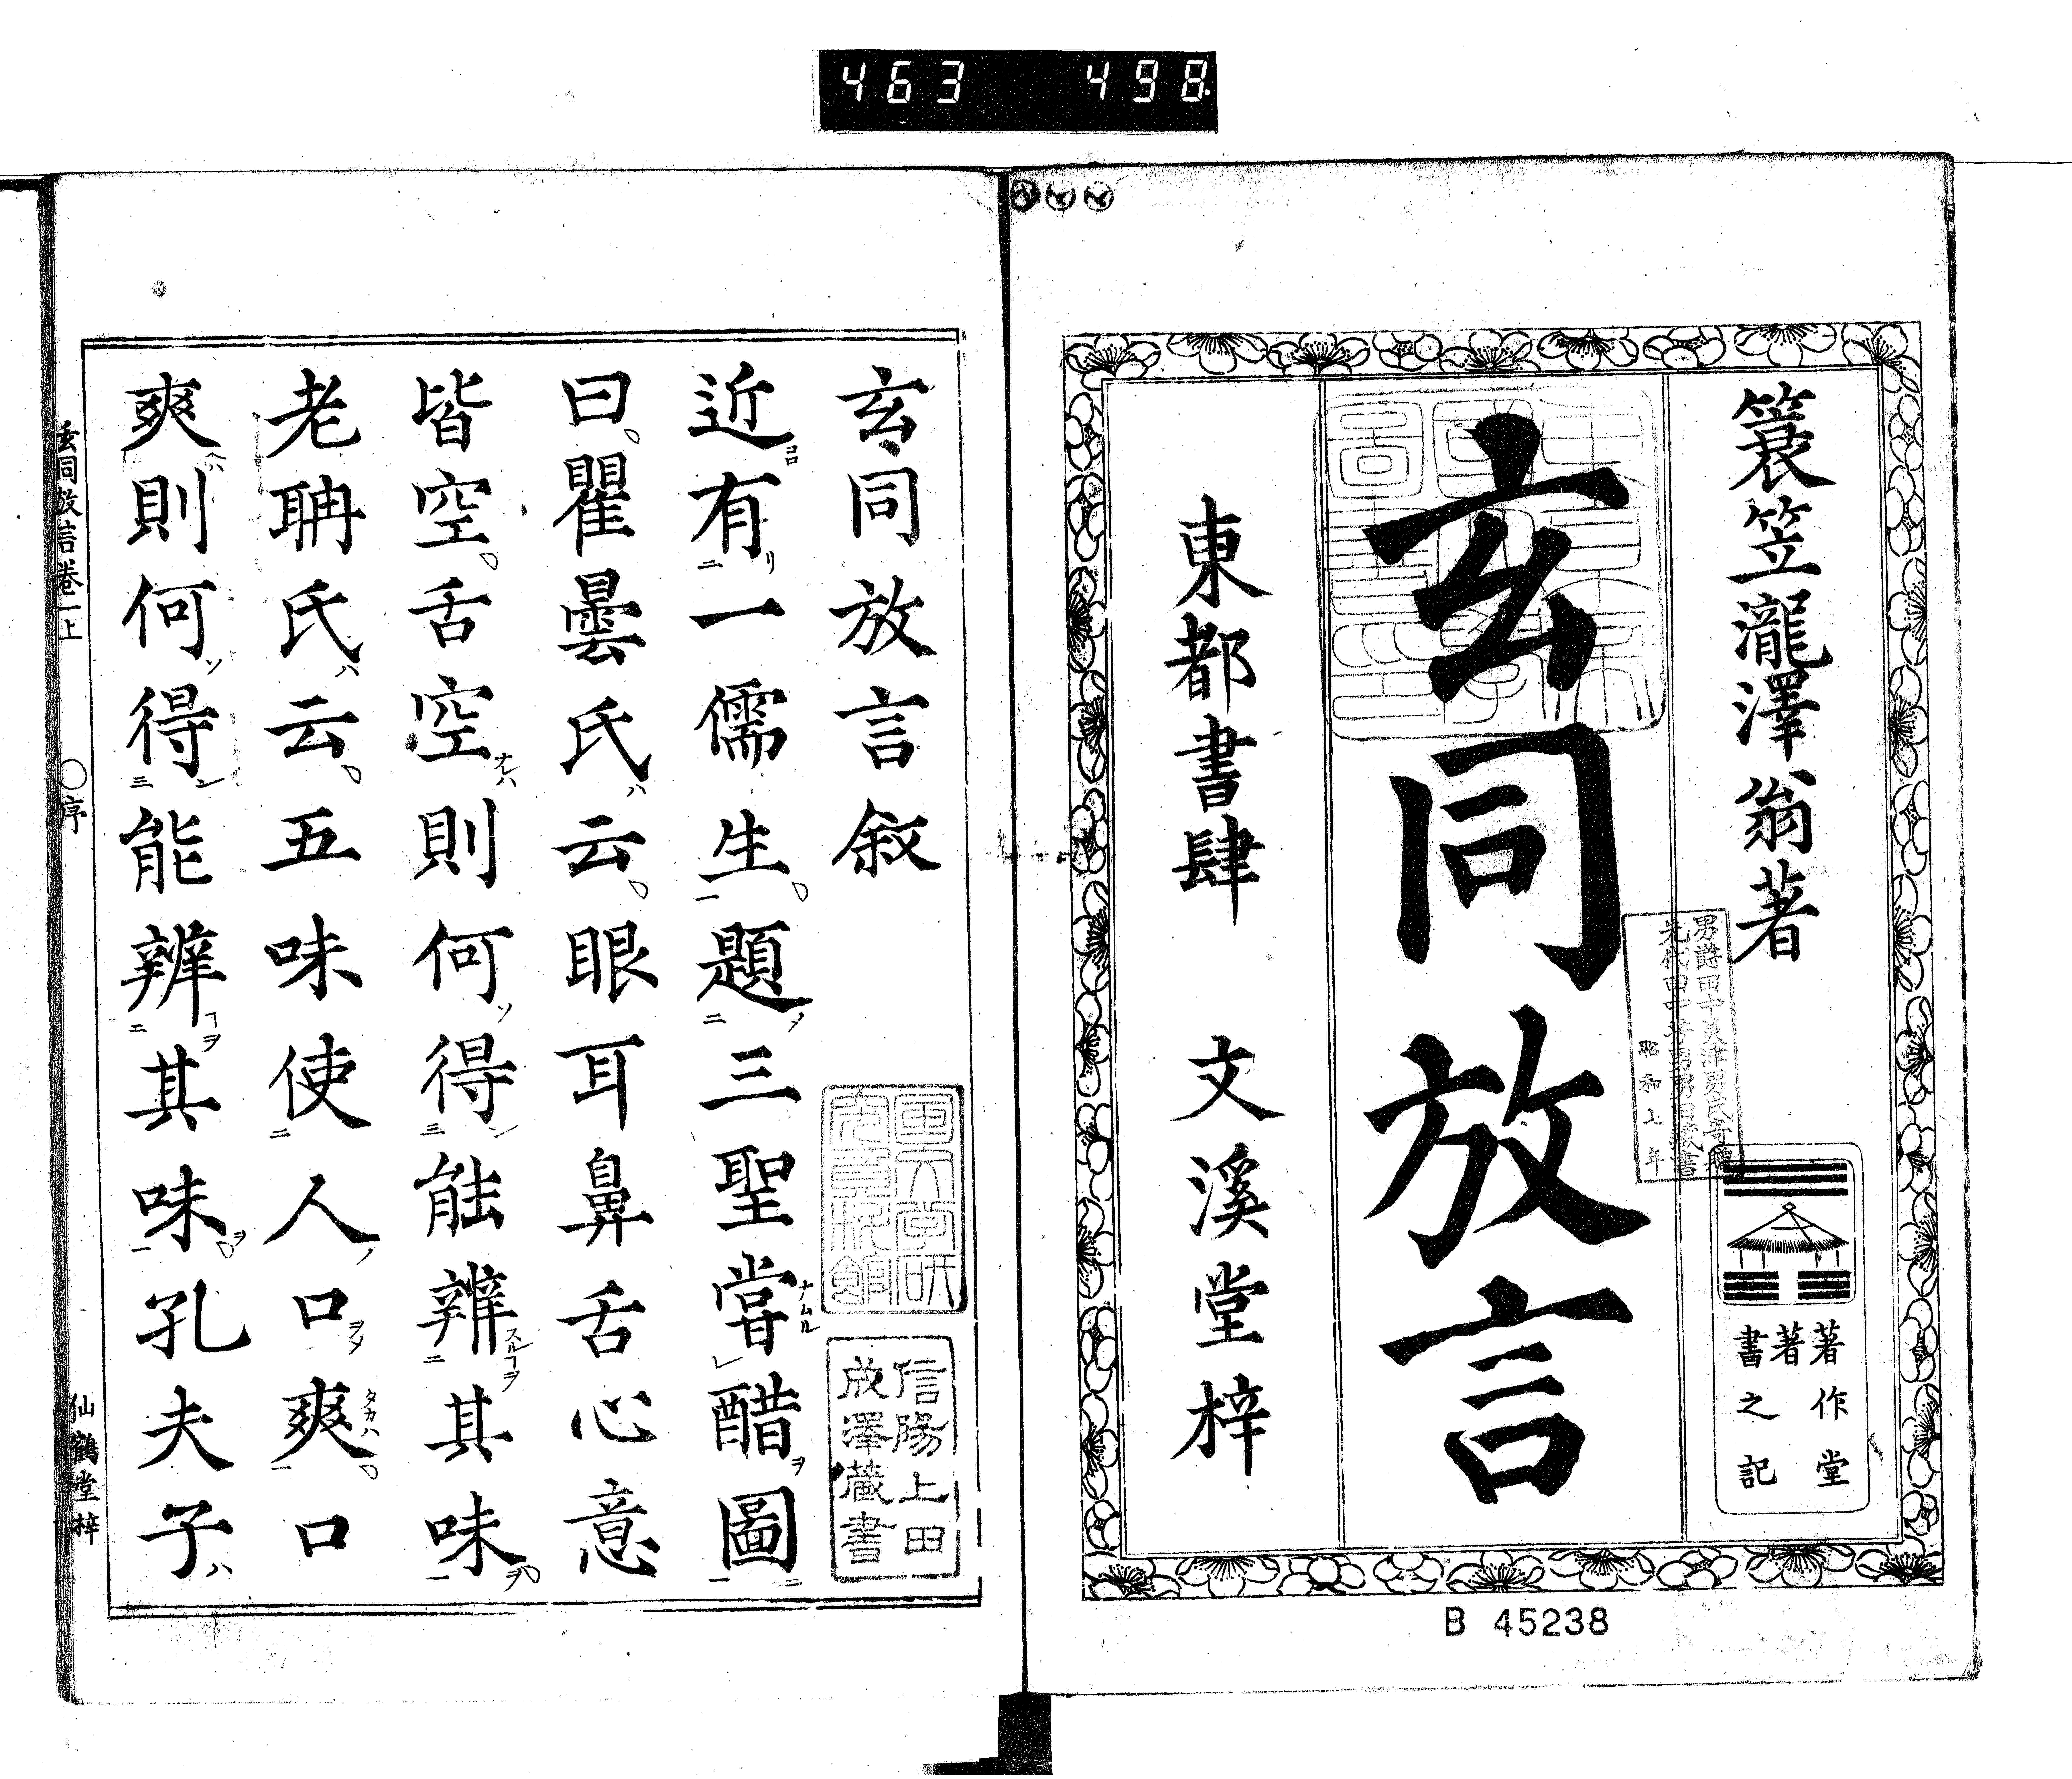 463 498
簑笠瀧澤翁著
著作堂
著
書之記
玄同放言
東都書肆 文溪堂梓
B 45238
玄同放言敘
信陽上田
成澤藏書
近有一儒生題三聖嘗醋圖
曰瞿曇氏云眼耳鼻舌心意
皆空舌空則何得能辨其味
老聃氏云五味使人口爽口
爽則何得能辨其味孔夫子
玄同放言卷一上 〇序 仙鶴堂梓